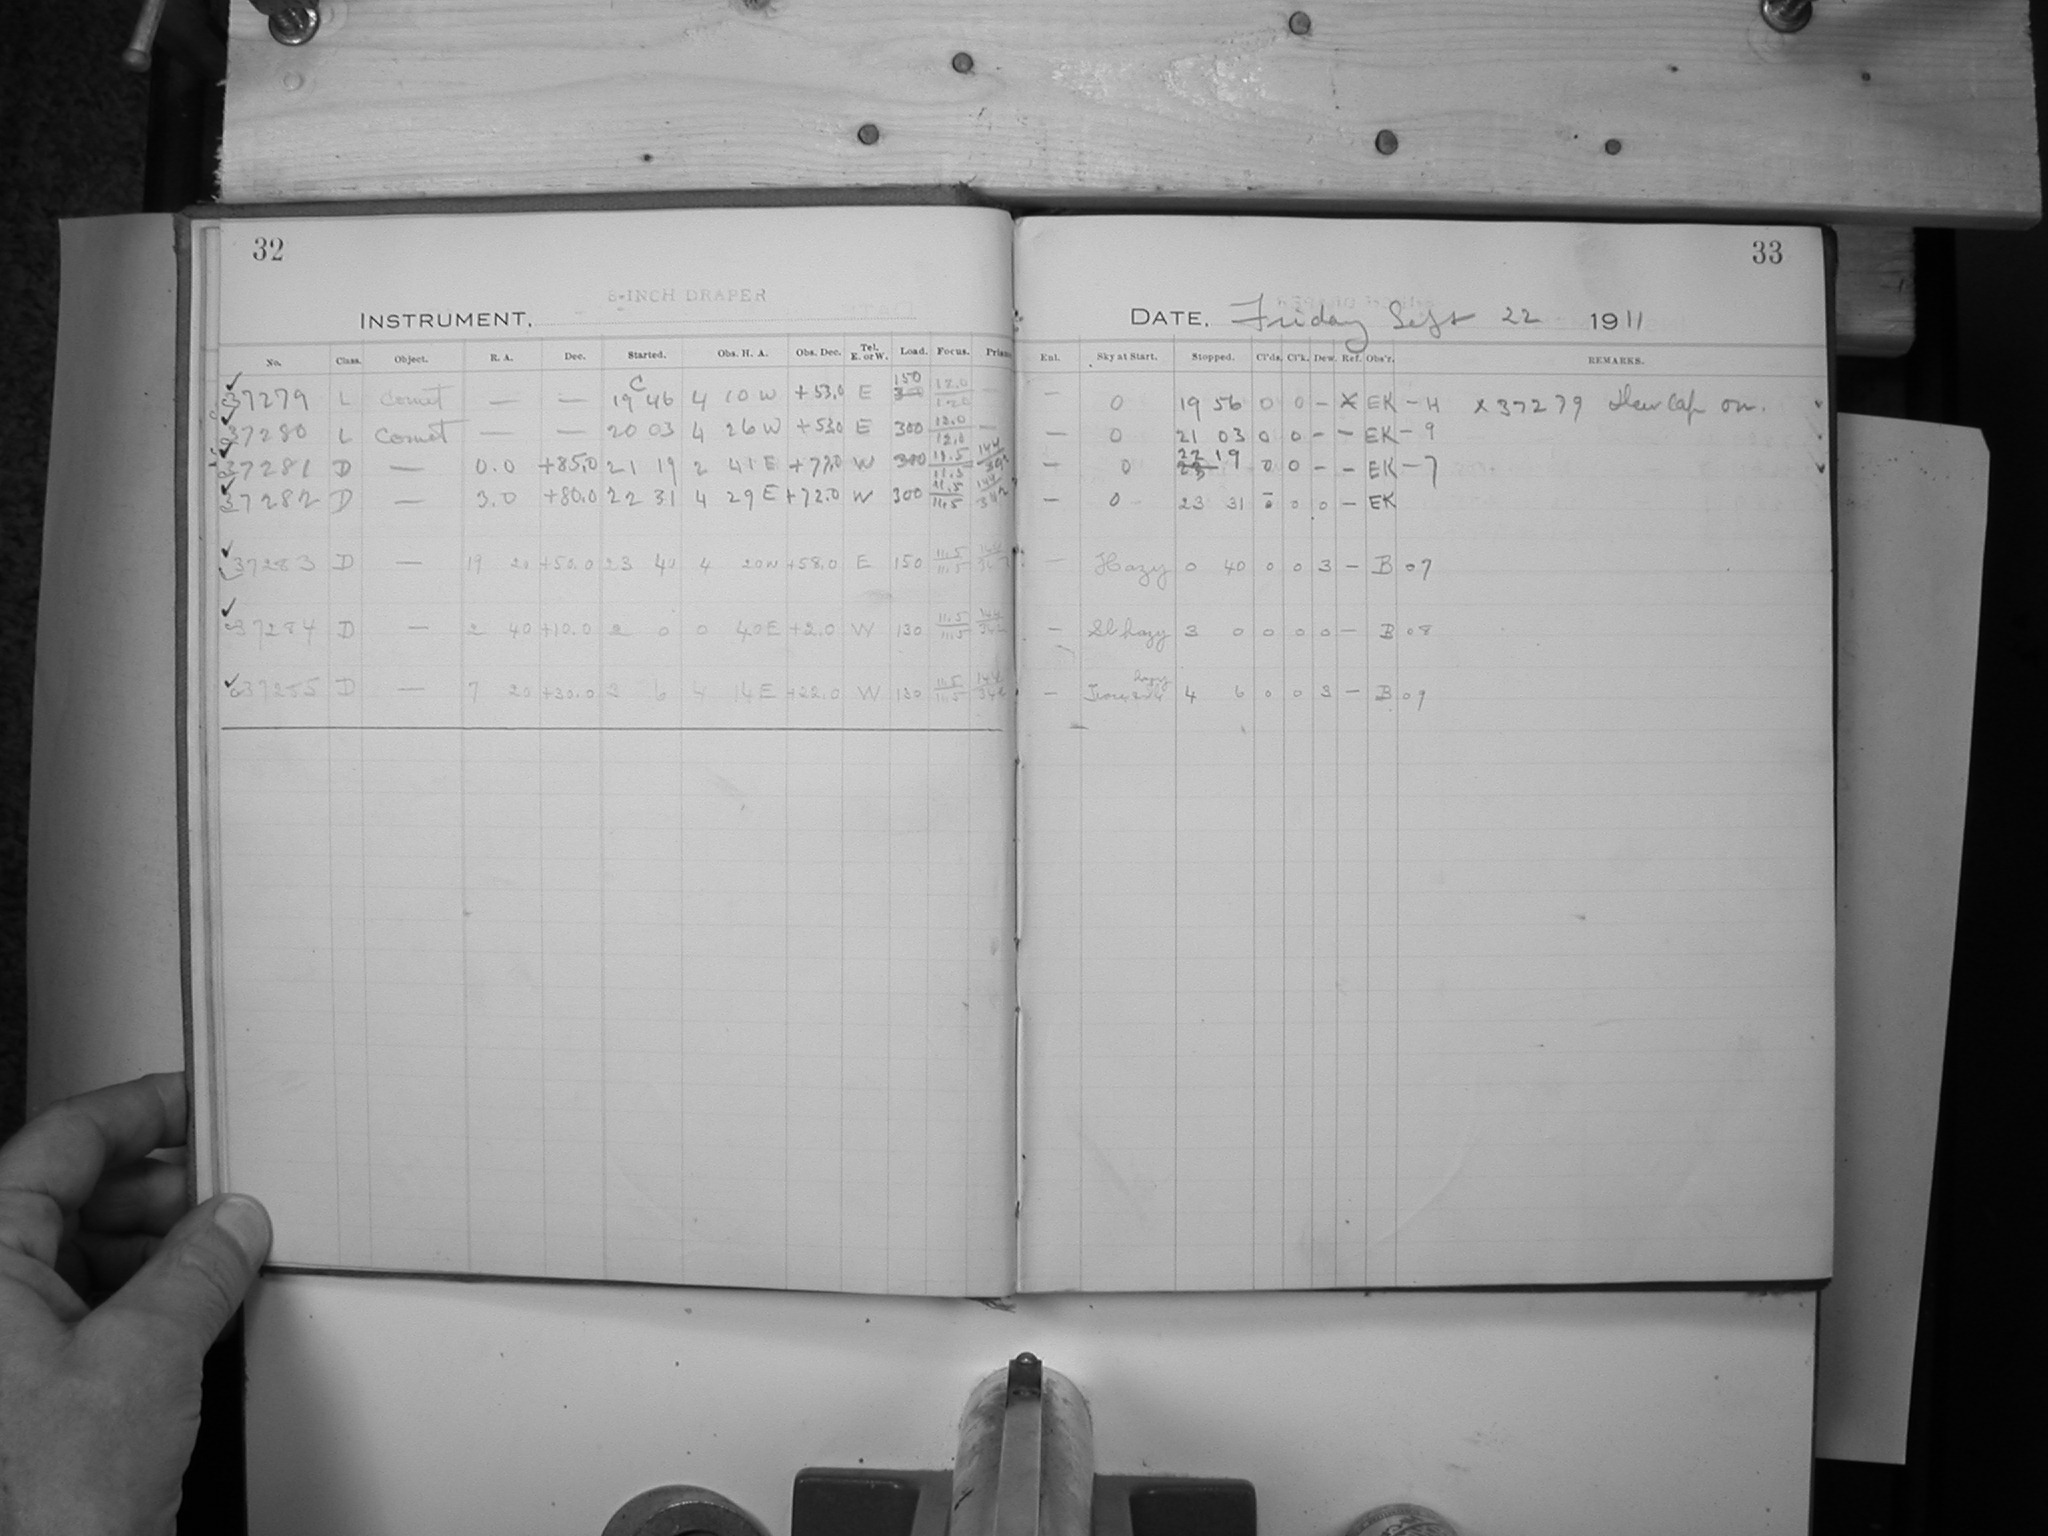 32
8-INCH DRAPER
INSTRUMENT.
No. Class. Object. R. A. Dec. Started. Obs. H. A. Obs. Dec. Tel. E. or W. Load. Focus.
37279 L Comet — — C 19 46 4 10 W +53.0 E 150 12.0 12.0 —
37280 L Comet — — 20 03 4 26 W +53.0 E 300 12.0 12.0 —
37281 D — 0.0 +85.0 21 19 2 41 E +77.0 W 300 11.5 11.5 144
37282 D — 3.0 +80.0 22 31 4 29 E +72.0 W 300 11.5 11.5 144 342
37283 D — 19 20 +50.0 23 40 4 20 W +58.0 E 150 11.5 11.5 144
37284 D — 2 40 +10.0 2 0 0 40 E +2.0 W 130 11.5 11.5 144 342
D — 7 20 +30.0 3 6 4 14 E +22.0 W 130 11.5 11.5 144 342
33
DATE. Friday Sept 22 1911
Enl. Sky at Start. Stopped. Cl'ds. Cl'k. Dew. Ref. Obs'r. REMARKS.
— 0 19 56 0 0 – X EK – H x 37279 New Cap on.
— 0 21 03 0 0 – – EK – 9
— 0 22 19 0 0 – – EK – 7
— 0 23 31 0 0 0 – EK
— Hazy 0 40 0 0 3 – B 07
— Sl hazy 3 0 0 0 0 – B 08
— hazy 4 6 0 0 3 – B 09